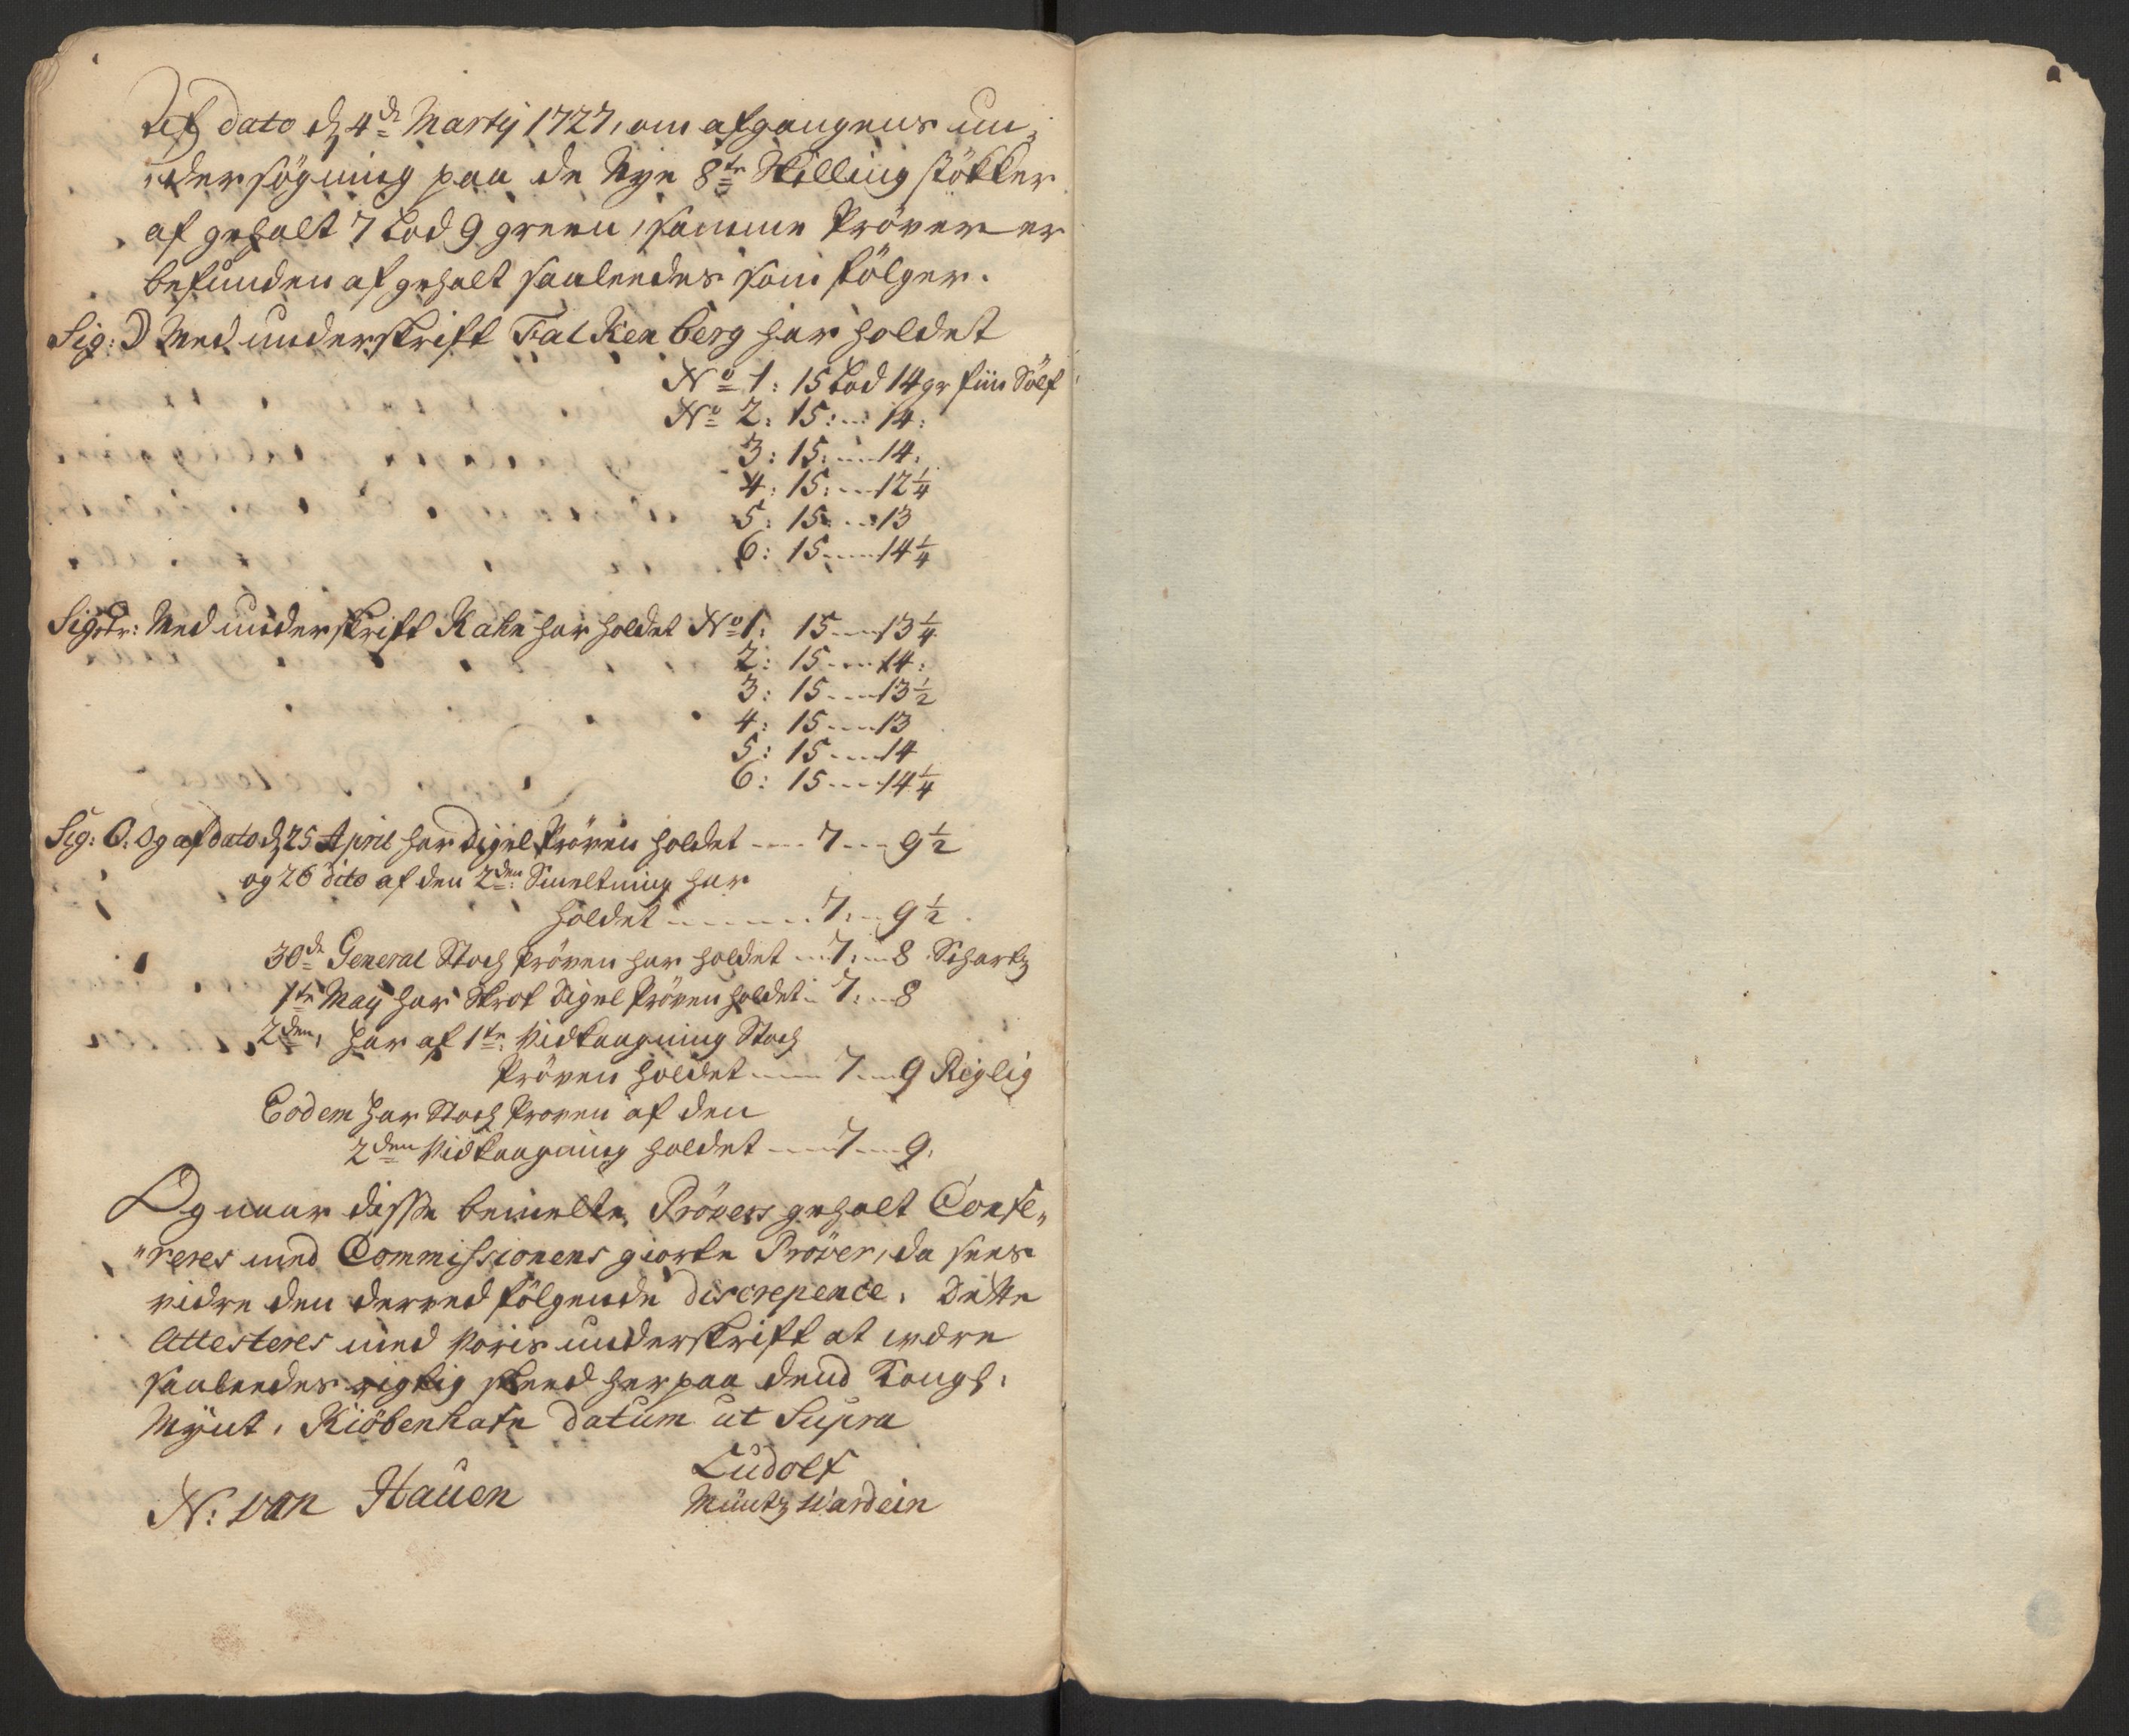 Af dato d 4de Martij 1727, om afgangens un-
dersøgning paa de Nye 8te Skilling stökker
af gehalt 7 Lod 9 green, samme Pröver er
befunden af gehalt saaledes som fölger.
Sig: D Med underskrift Falkenberg har holdet
No 1: 15 Lod 14 gr fiin Sölf
No 2: 15: 14:
3: 15: 14:
4: 15: 12 1/4
5: 15: 13
6: 15 14 1/4
Med underskrift Kahn har holdet No 1: 15 13 1/4
2: 15 14:
3: 15 13 1/2
4: 15 13
5: 15 14
6: 15 14 1/4
Sig: O. Og af dato d 25 April har Digel Pröven holdet 7 9 1/2
og 26 dito af den 2den Smeltning har
holdet 7: 9 1/2
30de General Stoch Pröven har holdet 7: 8 Schartz
1te May har Skrot Digel Pröven holdet 7: 8
2den, har af 1te Vidtaagning Stoch
Pröven holdet 7 9 Riglig
Eodem har Stoch Proven af den
2den Vidtaagning holdet 7 9.
Og naar disse bemelte Pröves gehalt Confe-
"reres med Commissionens giorte Pröver, da sees
vidre den derved fölgende discrepence. Dette
Attesteres med voris underskrift at være
saaledes rigtig skeed her paa dend Kongl:
Mÿnt, Kiöbenhafn datum ut Supra
Ludolf
N: von Hauen Müntz Wardein